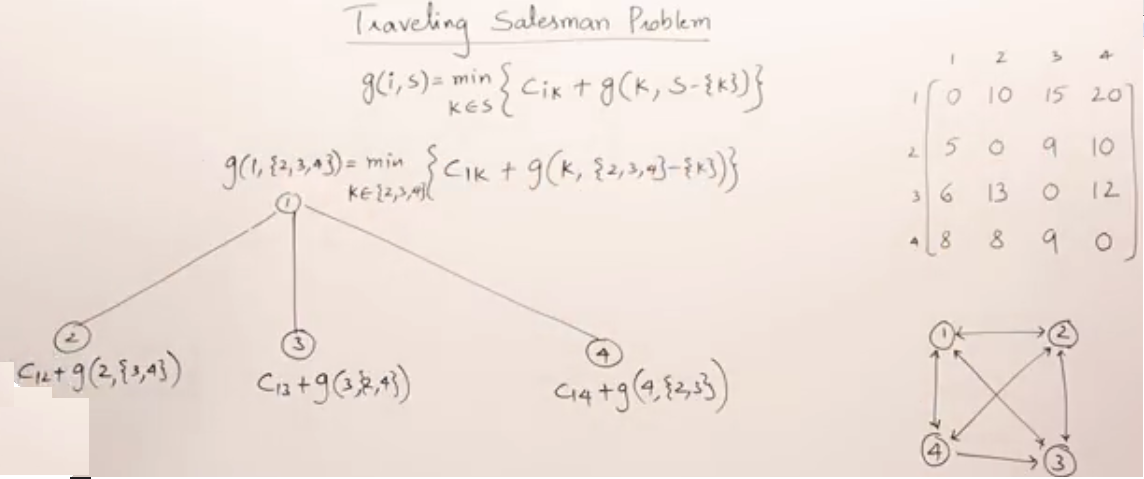 Traveling Salesman Problem
g(i, s) = min { Cik + g(k, s-{k}) }
k∈s
g(1, {2,3,4}) = min { C1k + g(k, {2,3,4}-{k}) }
k∈{2,3,4}
1
2 3 4
C12 + g(2, {3,4}) C13 + g(3, {2,4}) C14 + g(4, {2,3})
1 2 3 4
1 0 10 15 20
2 5 0 9 10
3 6 13 0 12
4 8 8 9 0
1 2
4 3